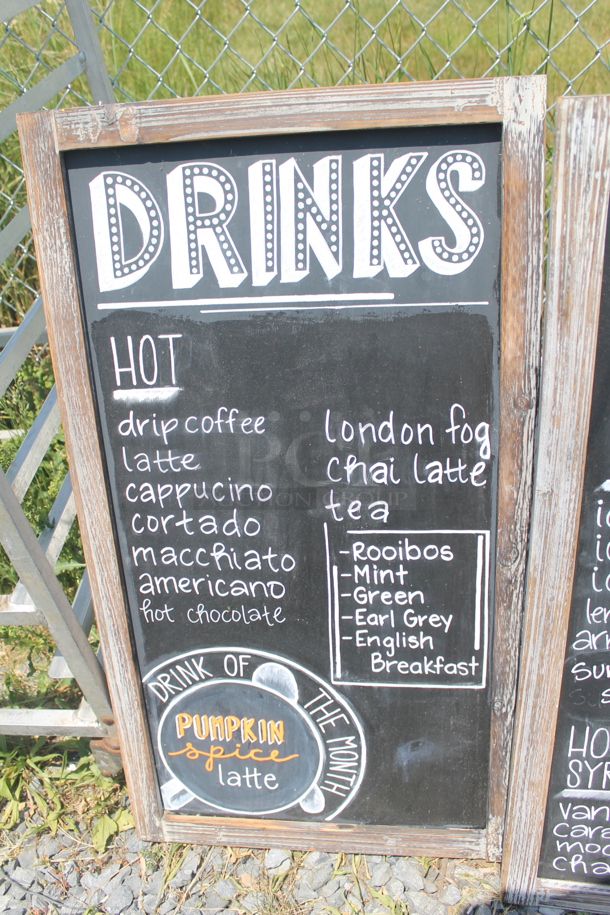 DRINKS
HOT
drip coffee
latte
cappucino
cortado
macchiato
americano
hot chocolate
london fog
chai latte
tea
-Rooibos
-Mint
-Green
-Earl Grey
-English
Breakfast
DRINK OF THE MONTH
PUMPKIN
spice
latte
AUCTION GROUP